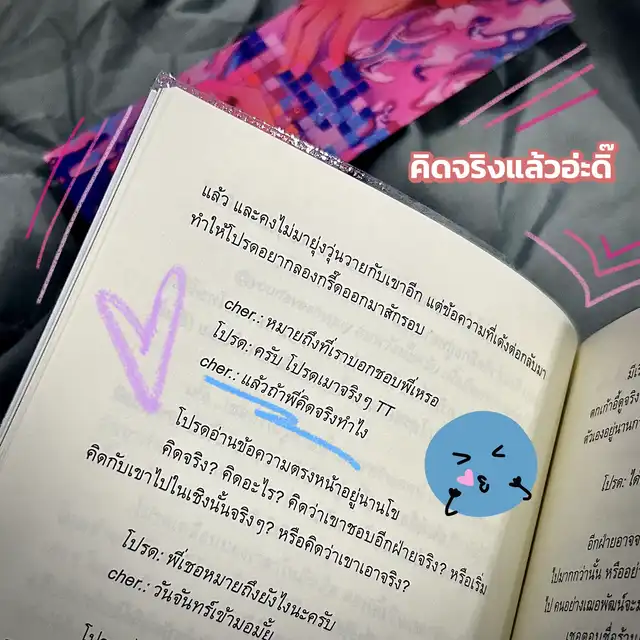 คิดจริงแล้วอ่ะดิ๊
แล้ว และคงไม่มายุ่งวุ่นวายกับเขาอีก แต่ข้อความที่เด้งต่อกลับมา
ทำให้โปรดอยากลองกรี๊ดออกมาสักรอบ
cher.: หมายถึงที่เราบอกชอบพี่เหรอ
โปรด: ครับ โปรดเมาจริงๆ TT
cher.: แล้วถ้าพี่คิดจริงทำไง
โปรดอ่านข้อความตรงหน้าอยู่นานโข
คิดจริง? คิดอะไร? คิดว่าเขาชอบอีกฝ่ายจริง? หรือเริ่ม
คิดกับเขาไปในเชิงนั้นจริงๆ? หรือคิดว่าเขาเอาจริง?
โปรด: พี่เชอหมายถึงยังไงนะครับ
cher.: วันจันทร์เข้ามอมั้ย
ตัวเองอยู่นาน
โปรด:
อีกฝ่ายอาจ
ไปมากกว่านั้น หรืออย่า
ไป คนอย่างเฌอพัฒน์จะ